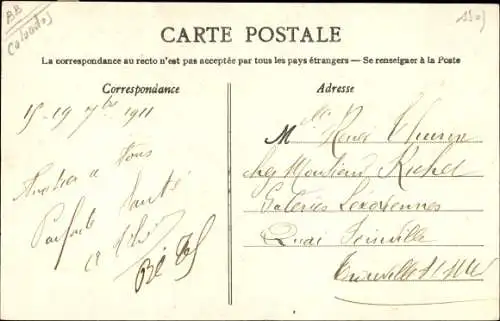 BB
Calvados
CARTE POSTALE
La correspondance au recto n'est pas acceptée par tous les pays étrangers — Se renseigner à la Poste
Correspondance
Adresse
15-19 7bre 1911
à tous
Parfaite Santé
Mlle Renée
chez Monsieur Richel
Galeries Lexoviennes
Quai Joinville
Trouville S/ Mer